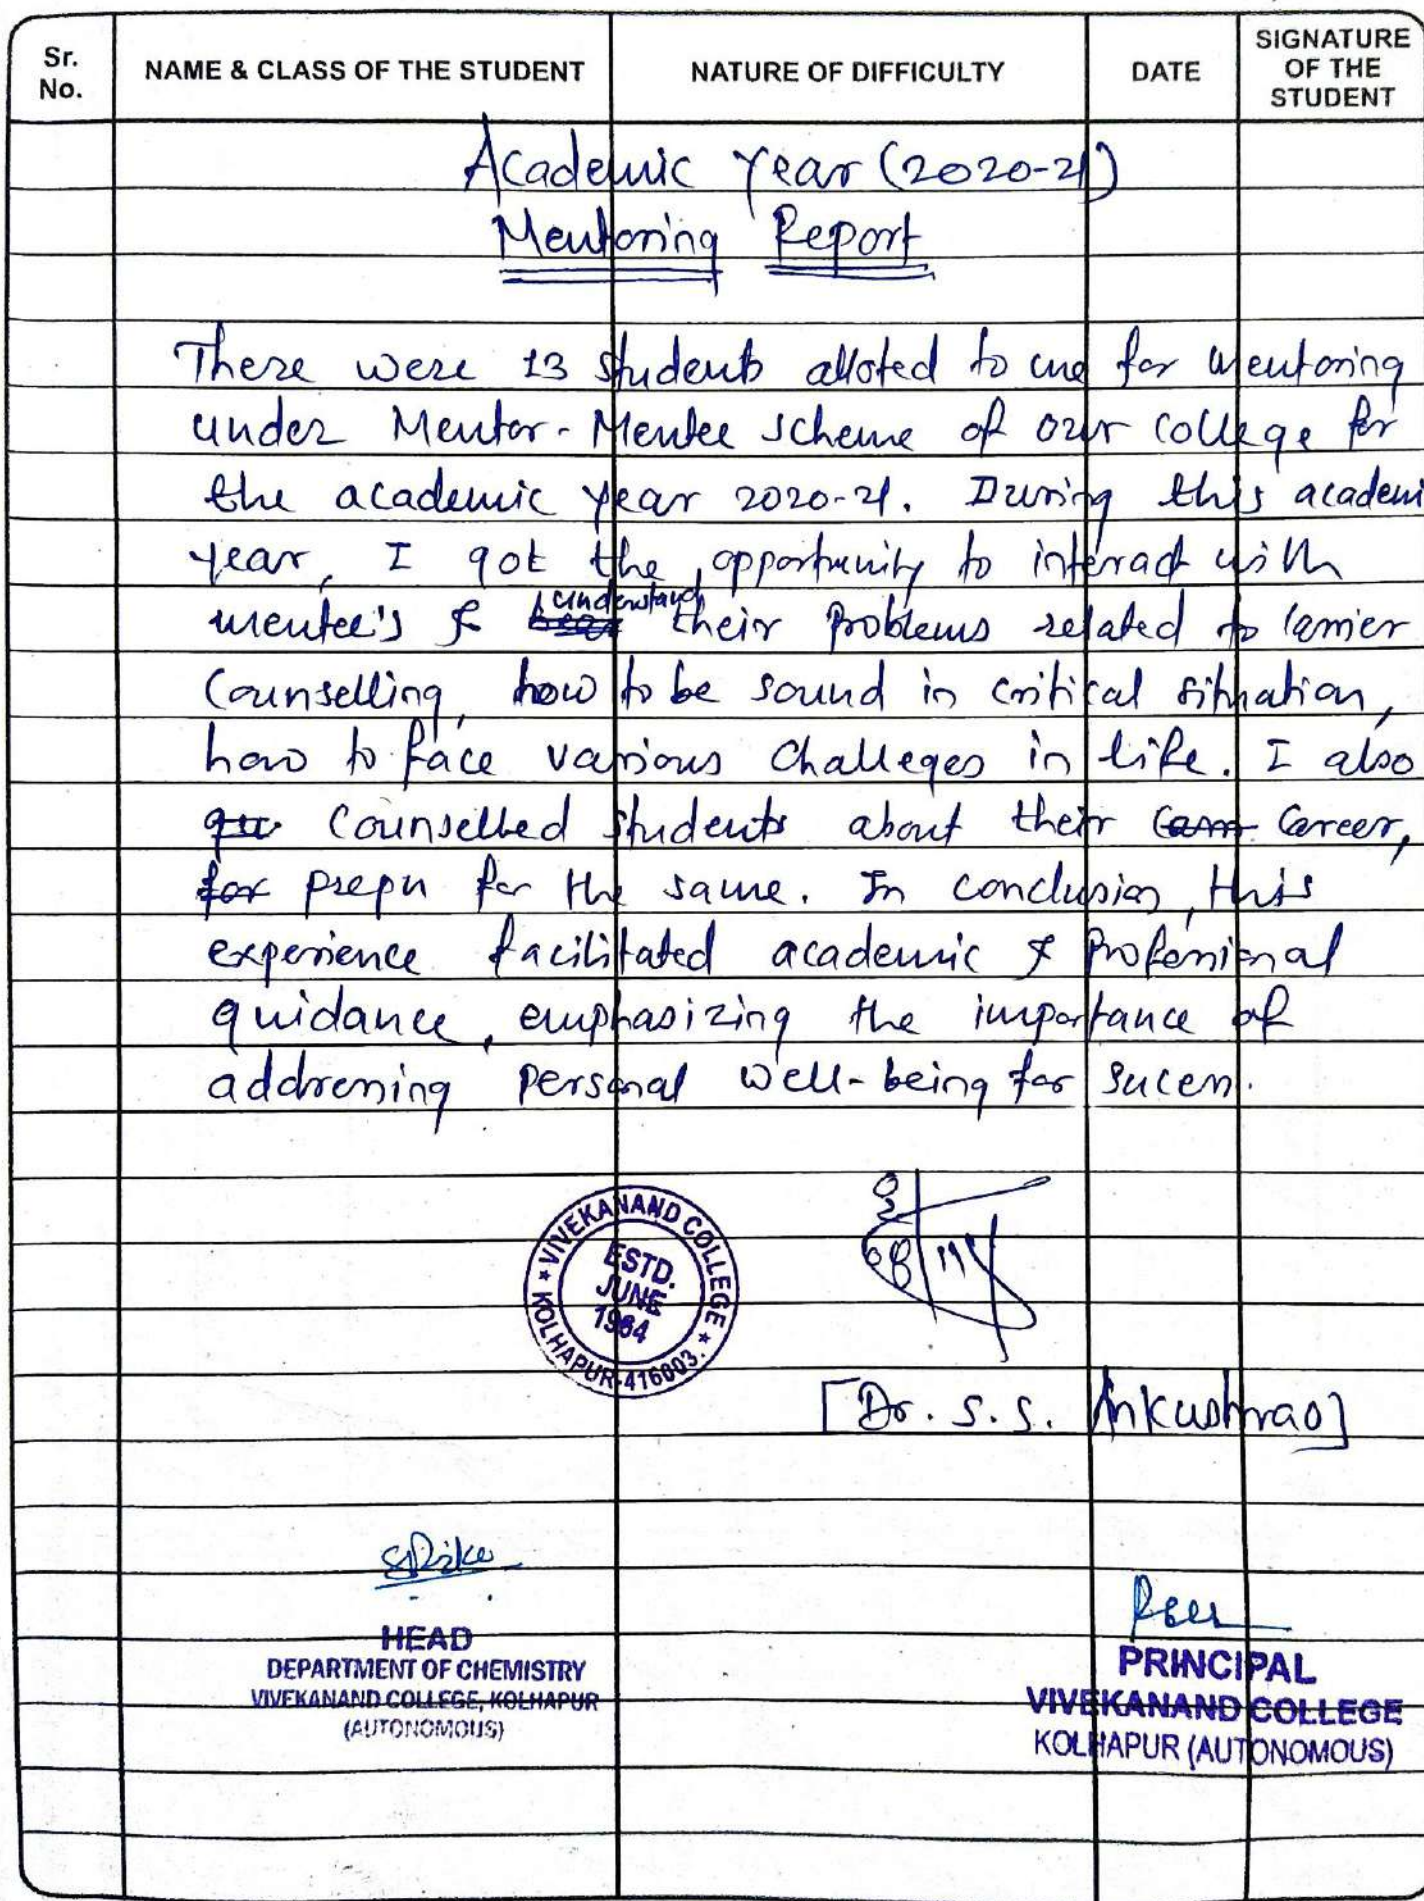 Sr. No.
NAME & CLASS OF THE STUDENT
NATURE OF DIFFICULTY
DATE
SIGNATURE OF THE STUDENT
Academic Year (2020-21)
Mentoring Report
There were 13 students alloted to me for mentoring
under Mentor-Mentee scheme of our college for
the academic year 2020-21. During this academi
year, I got the opportunity to interact with
mentee's & understand their problems related to carrier
Counselling, how to be sound in critical situation,
how to face various challeges in life. I also
Counselled students about their Career,
prepn for the same. In conclusion, this
experience facilitated academic & professional
guidance, emphasizing the importance of
addressing personal well-being for sucess.
★ VIVEKANAND COLLEGE ★
KOLHAPUR-416003.
ESTD.
JUNE
1964
[Dr. S. S. Ankushrao]
HEAD
DEPARTMENT OF CHEMISTRY
VIVEKANAND COLLEGE, KOLHAPUR
(AUTONOMOUS)
PRINCIPAL
VIVEKANAND COLLEGE
KOLHAPUR (AUTONOMOUS)